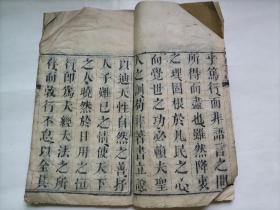 乎篤行而非語言之間
所得而盡也雖然降衷
之理固根於凡民之心
而覺世之功必賴夫聖
人之訓苟非著書立說
以迪天性自然之善抒
人子難已之情使天下
之人曉然於日用之恆
行卽爲天經大法之所
在而敦行不怠以全其